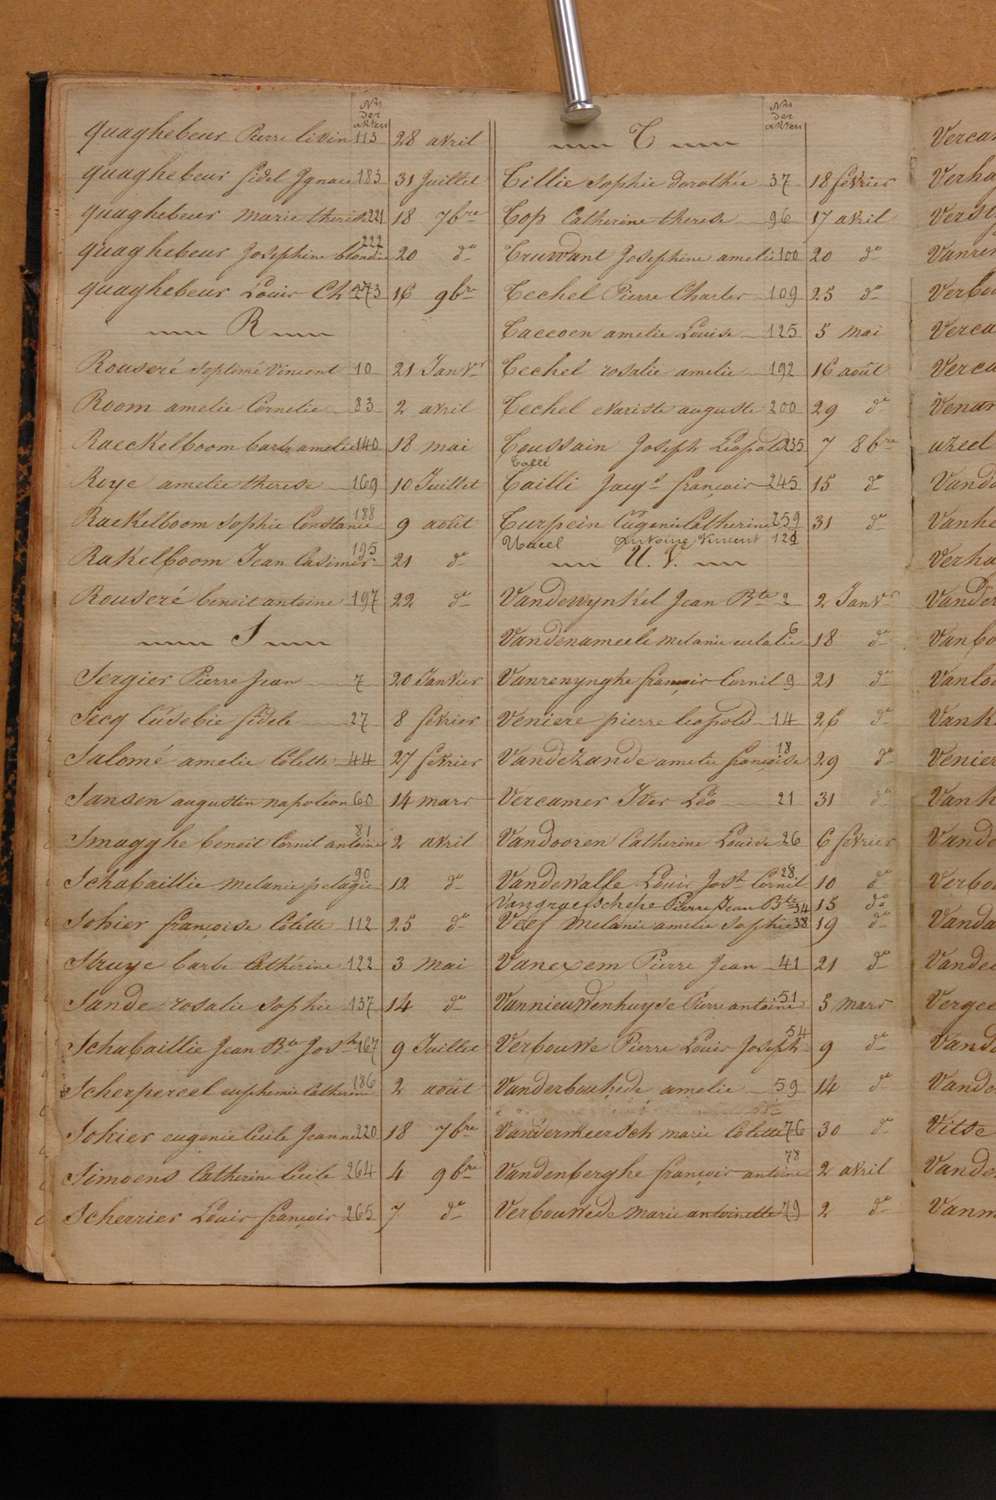 Nrs der akten
quaghebeur Pierre livin 113 28 avril
quaghebeur fidel Ignace 183 31 Juillet
quaghebeur marie therese 221 18 7bre
quaghebeur Josephine blondine 222 20 do
quaghebeur Louis Ch 273 16 9bre
R
Rouseré Septimé Vincent 10 21 Janvr
Room amelie Cornelie 83 2 avril
Raeckelboom barbe amelie 140 18 mai
Reye amelie therese 169 10 Juillet
Raekelboom Sophie Constance 188 9 août
Rakelboom Jean Casimir 195 21 do
Rouseré benoit antoine 197 22 do
S
Sergier Pierre Jean 7 20 Janvier
Secq Eusebie fidele 27 8 février
Salomé amelie Colette 44 27 février
Sansen augustin napoléon 60 14 mars
Smagghe benoit Cornil antoine 81 2 avril
Schabaillie melanie pelagie 90 12 do
Sohier françoise Colette 112 25 do
Struye barbe Cathérine 122 3 mai
Sande rosalie Sophie 137 14 do
Schabaillie Jean Bte Josh 167 9 Juillet
Scherpereel euphemie Catherine 186 2 août
Sohier eugenie Cecile Jeanne 220 18 7bre
Simoens Catherine Cecile 264 4 9bre
Scherrier Louis françois 265 7 do
Nrs der akten
T
Tillie Sophie dorothée 37 18 février
Top Catherine therese 96 17 avril
Truwant Josephine amelie 100 20 do
Techel Pierre Charles 109 25 do
Taccoen amelie Louise 125 5 mai
Techel rosalie amelie 192 16 août
Techel evariste auguste 200 29 do
Toussain Joseph Léopold 235 7 8bre
Tailli Jacqs françois 245 15 do
Turpein Eugenie Catherine 259 31 do
Uxeel Antoine Vincent 129
U. V.
Vandewynkel Jean Bte 2 2 Janvr
Vandenameele melanie eulalie 6 18 do
Vanrenynghe françois Cornil 9 21 do
Veniere pierre leopold 14 26 do
Vandezande amelie françoise 18 29 do
Vercamer Ives Léo 21 31 do
Vandooren Catherine Louise 26 6 février
Vandewalle Louis Josh Cornil 28 10 do
Vangraefschepe Pierre Jean Bte 34 15 do
Veef melanie amelie Sophie 38 19 do
Vanexem Pierre Jean 41 21 do
Vannieuwenhuyse Pierre antoine 51 3 mars
Verbouwe Pierre Louis Joseph 54 9 do
Vanderbouhede amelie 59 14 do
Vandermeersch marie Colette 76 30 do
Vandenberghe françois antoine 78 2 avril
Verbouwede marie antoinette 79 2 do